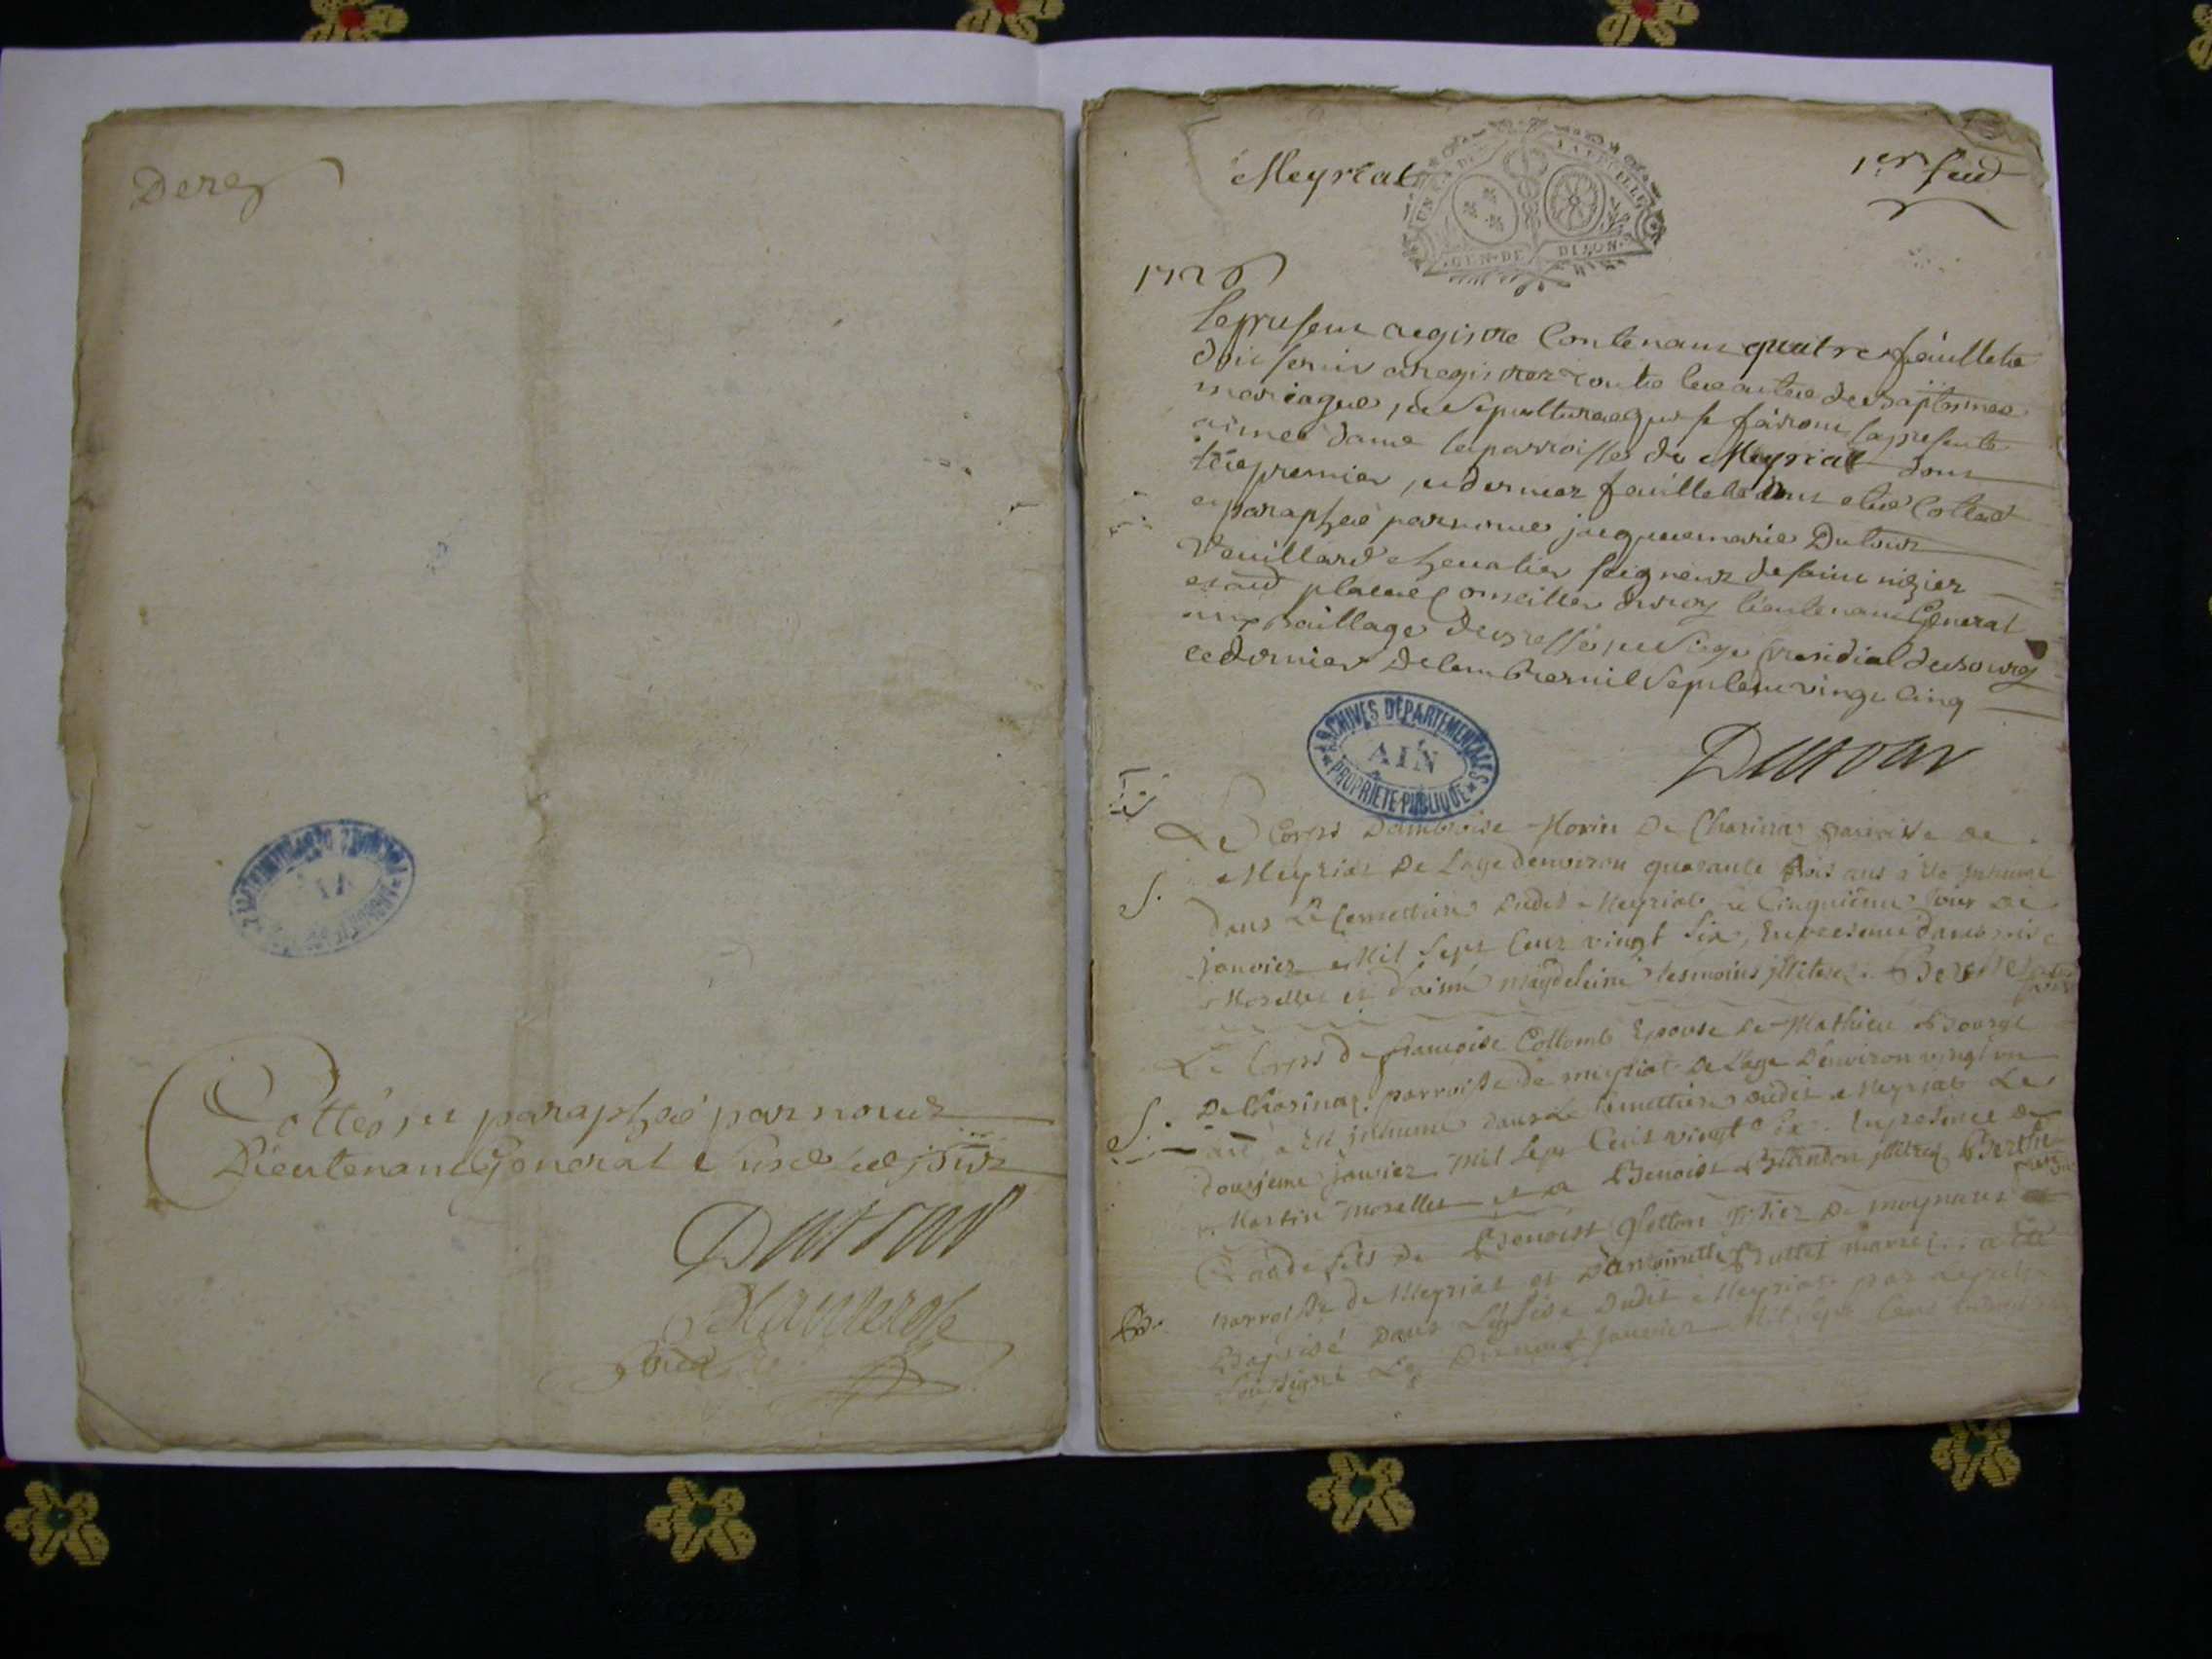 Derer
ARCHIVES DEPARTEMENTALES
AIN
PROPRIETE PUBLIQUE
Cottés et paraphée par nous
Lieutenant General susd led jour
Dutour
Meyriat
1er feuil
GEN DE DIJON
1726
Le present registre Contenant quatre feüillets
doit servir a registrer toutes les actes de baptesmes
mariages, et sepultures qui se fairont la presente
année dans la parroisse de Meyriat dont
les premier, et dernier feüillets ont etés Cottéé
et paraphéé par nous jacque marie Dutour
Veuillard chevalier seigneur de saint nizier
et aud places Conseiller du roy lieutenant General
aux baillage de bresse, et siege presidial de bourg
ce dernier decembre mil sept cent vingt cinq
Dutour
ARCHIVES DEPARTEMENTALES
AIN
PROPRIETE PUBLIQUE
Le Corps D'ambroise Morin De Charinas parroisse de
S. Meyriat De l'age denviron quarante trois ans a été Inhumé
dans Le Cemettiere dudit Meyriat Le Cinquième jour de
janvier Mil sept Cent vingt six, En presence
Morellet et d'aimé Magdeleine tesmoins jllitérés
Le Corps de françoise Collomb Epouse de Mathieu
S. De Charinas parroisse de meyriat De l'age D'environ vingt un
ans, a Eté jnhumé dans Le Cemettiere dudit Meyriat Le
douzieme janvier Mil sept Cent vingt six. En presence de
Martin Morellet et a Benoist jllitérés
Claude fils de Benoist
B. parroisse de Meyriat et D'antoinette mariéz.. a été
Baptisé Dans L'Eglise Dudit Meyriat par
soussigné Le janvier Mil sept Cent